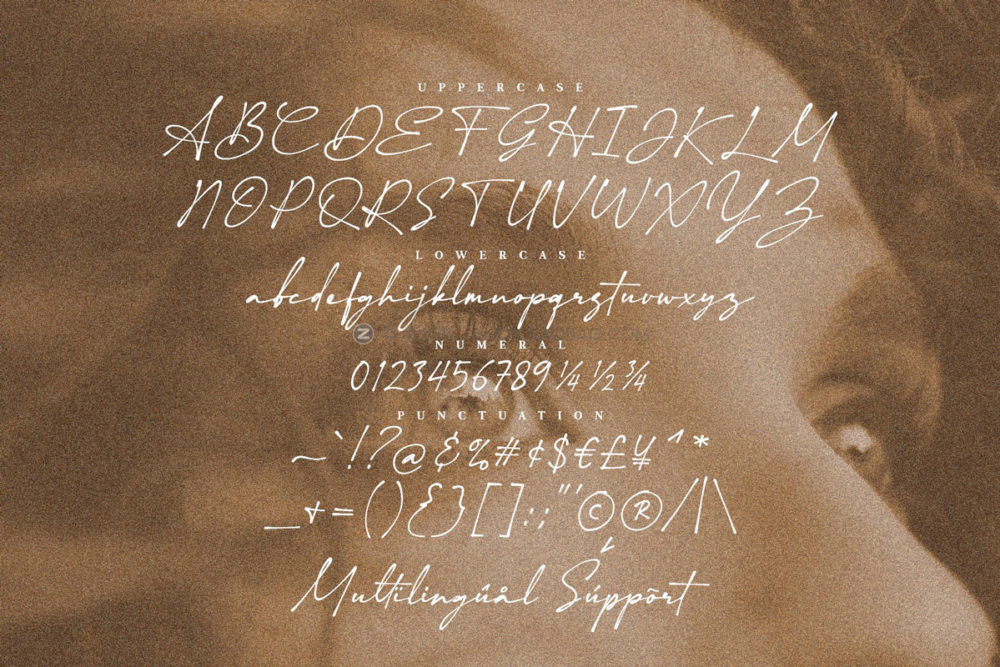 UPPERCASE
ABCDEFGHIJKLM
NOPQRSTUVWXYZ
LOWERCASE
abcdefghijklmnopqrstuvwxyz
NUMERAL
0123456789 ¼ ½ ¾
PUNCTUATION
~`!?@&%#¢$€£¥^*
_+=(){}[]:;"'©®/|\
Multilingûål Śúppõrt